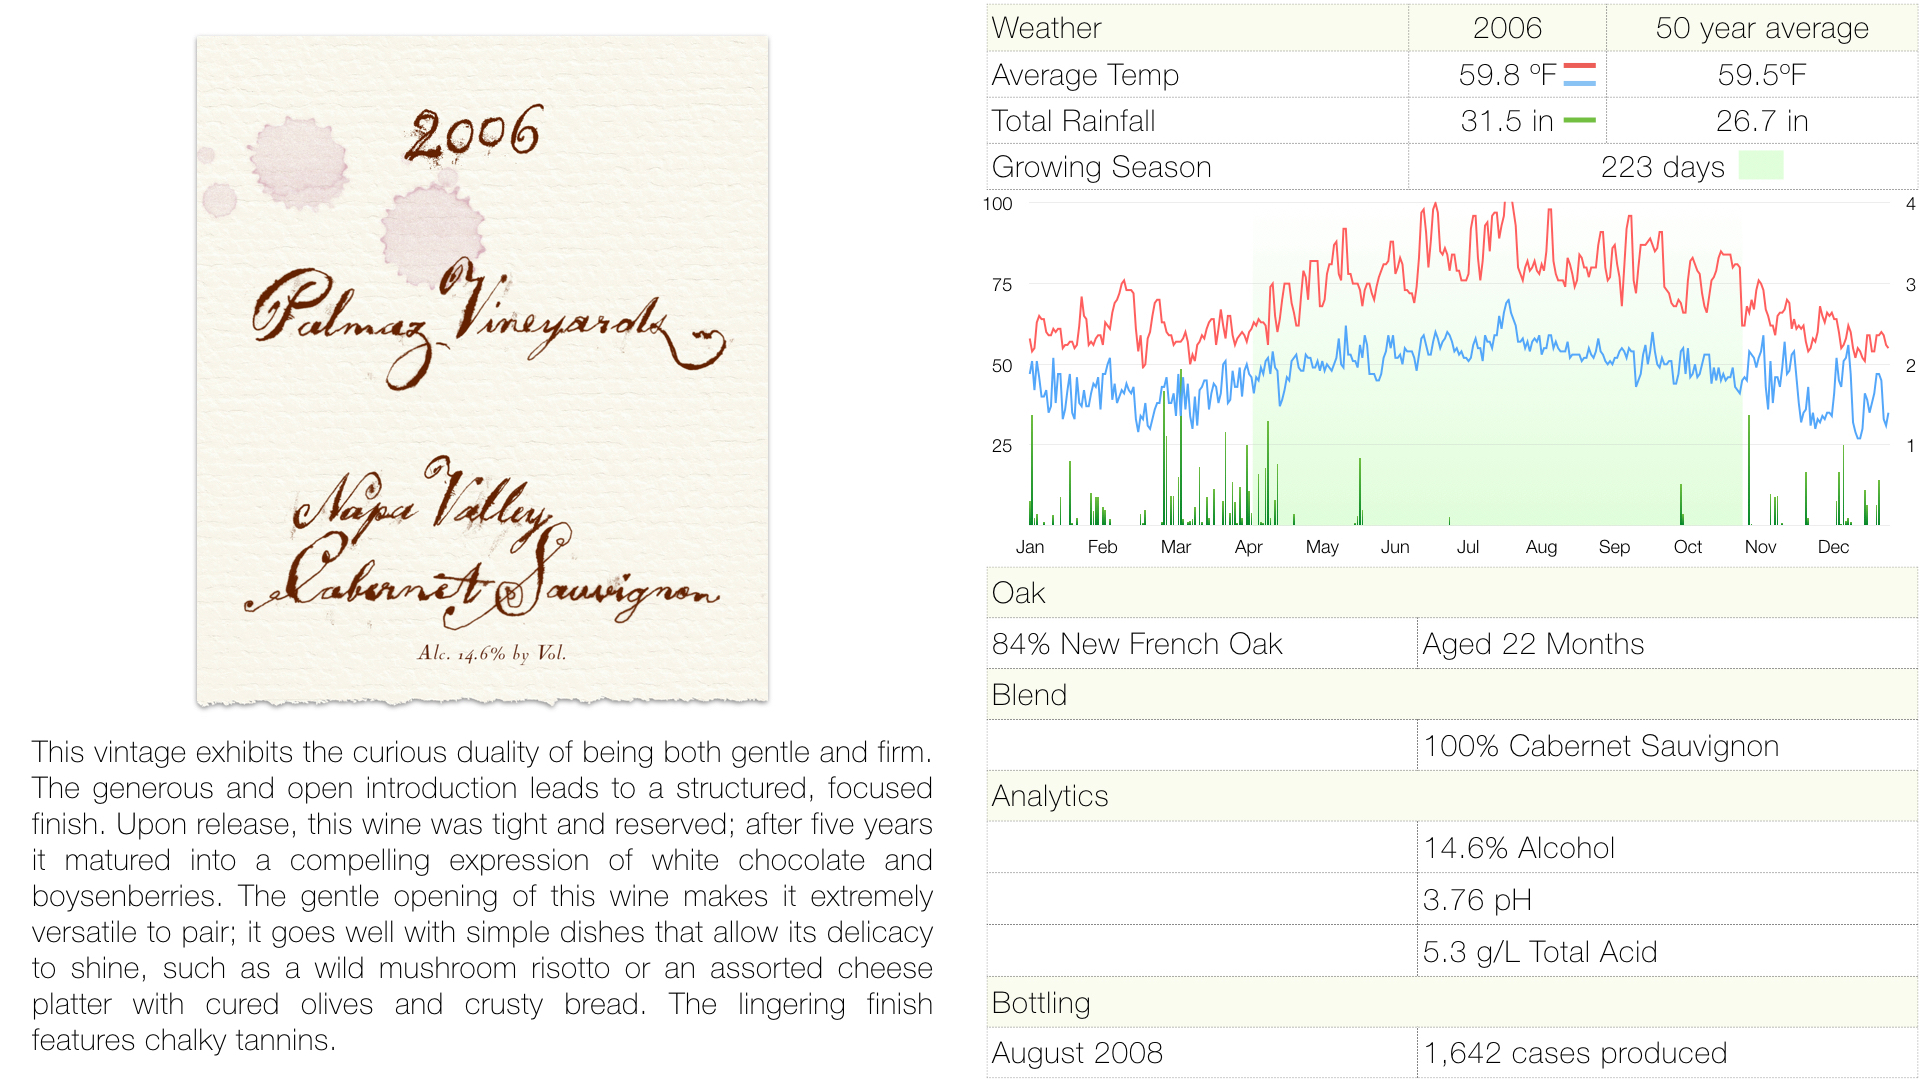 2006
Palmaz Vineyards
Napa Valley
Cabernet Sauvignon
Alc. 14.6% by Vol.
This vintage exhibits the curious duality of being both gentle and firm.
The generous and open introduction leads to a structured, focused
finish. Upon release, this wine was tight and reserved; after five years
it matured into a compelling expression of white chocolate and
boysenberries. The gentle opening of this wine makes it extremely
versatile to pair; it goes well with simple dishes that allow its delicacy
to shine, such as a wild mushroom risotto or an assorted cheese
platter with cured olives and crusty bread. The lingering finish
features chalky tannins.
Weather 2006 50 year average
Average Temp 59.8 ºF 59.5ºF
Total Rainfall 31.5 in 26.7 in
Growing Season 223 days
100 4
75 3
50 2
25 1
Jan Feb Mar Apr May Jun Jul Aug Sep Oct Nov Dec
Oak
84% New French Oak Aged 22 Months
Blend
100% Cabernet Sauvignon
Analytics
14.6% Alcohol
3.76 pH
5.3 g/L Total Acid
Bottling
August 2008 1,642 cases produced